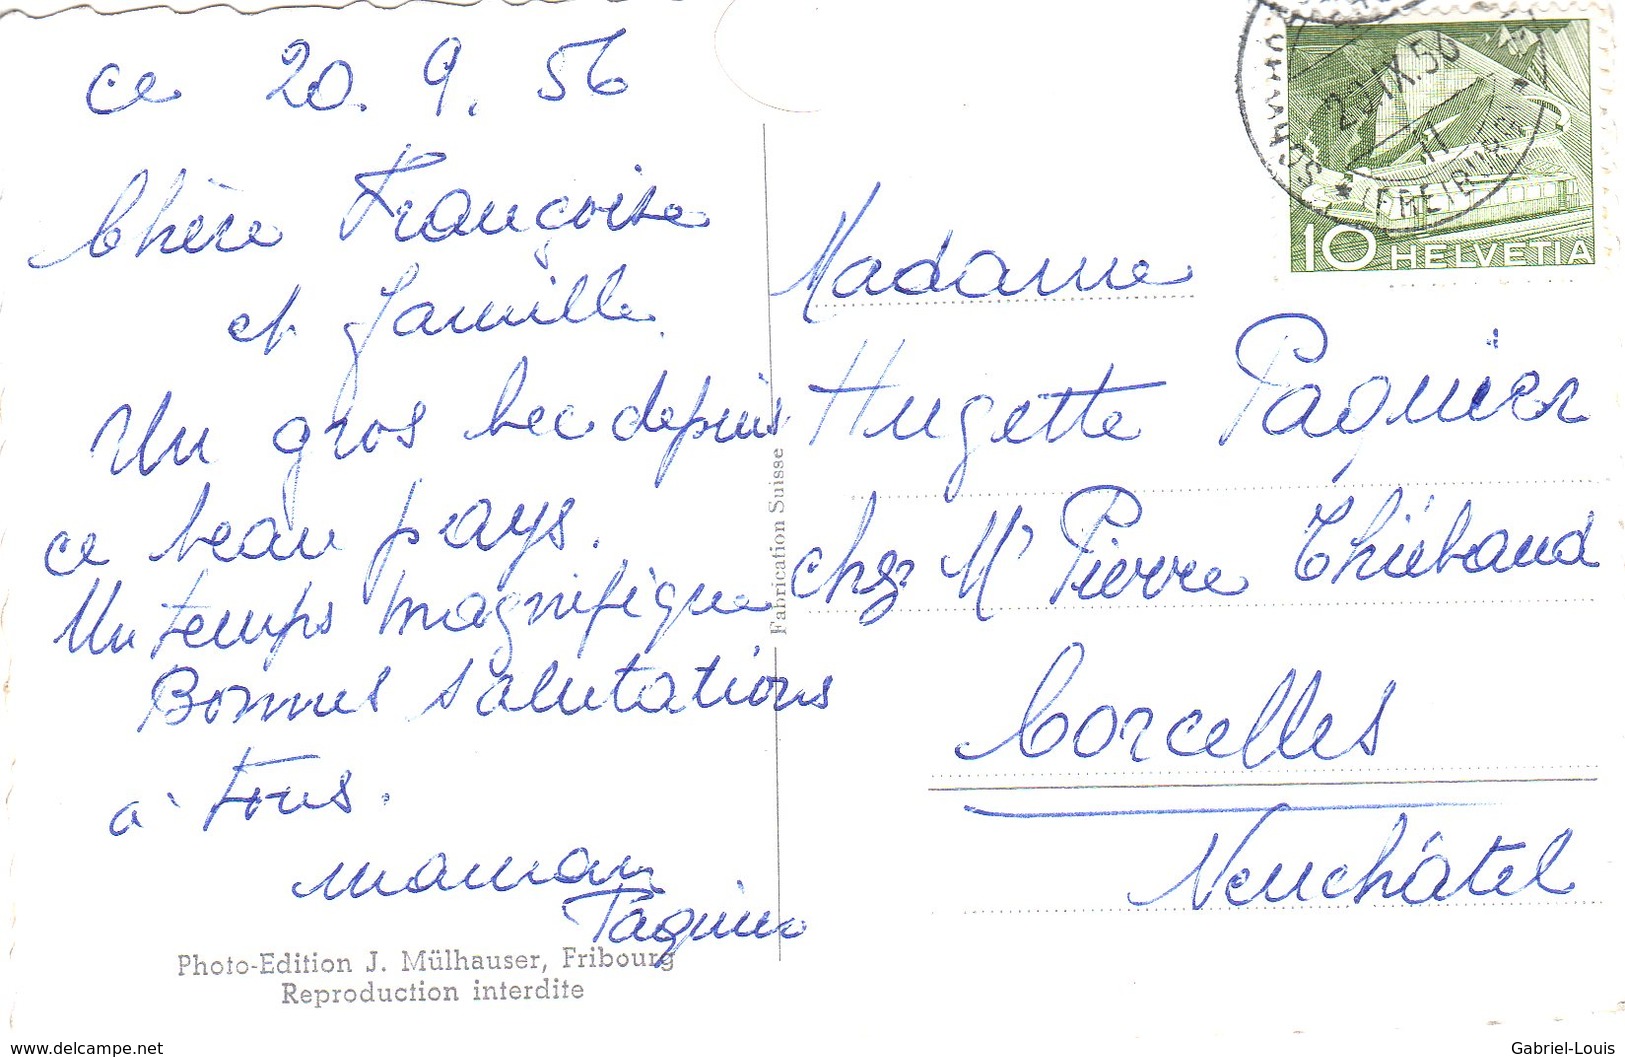 ce 20. 9. 56
Chère Françoise
et famille
Un gros bec depuis
ce beau pays.
Un temps magnifique
Bonnes salutations
à tous.
maman
Paquier
Photo-Edition J. Mülhauser, Fribourg
Reproduction interdite
Fabrication Suisse
10 HELVETIA
(FREIBURG)
IX.56
11
Madame
Hugette Paquier
chez Mr Pierre Thiébaud
Corcelles
Neuchâtel
www.delcampe.net
Gabriel-Louis